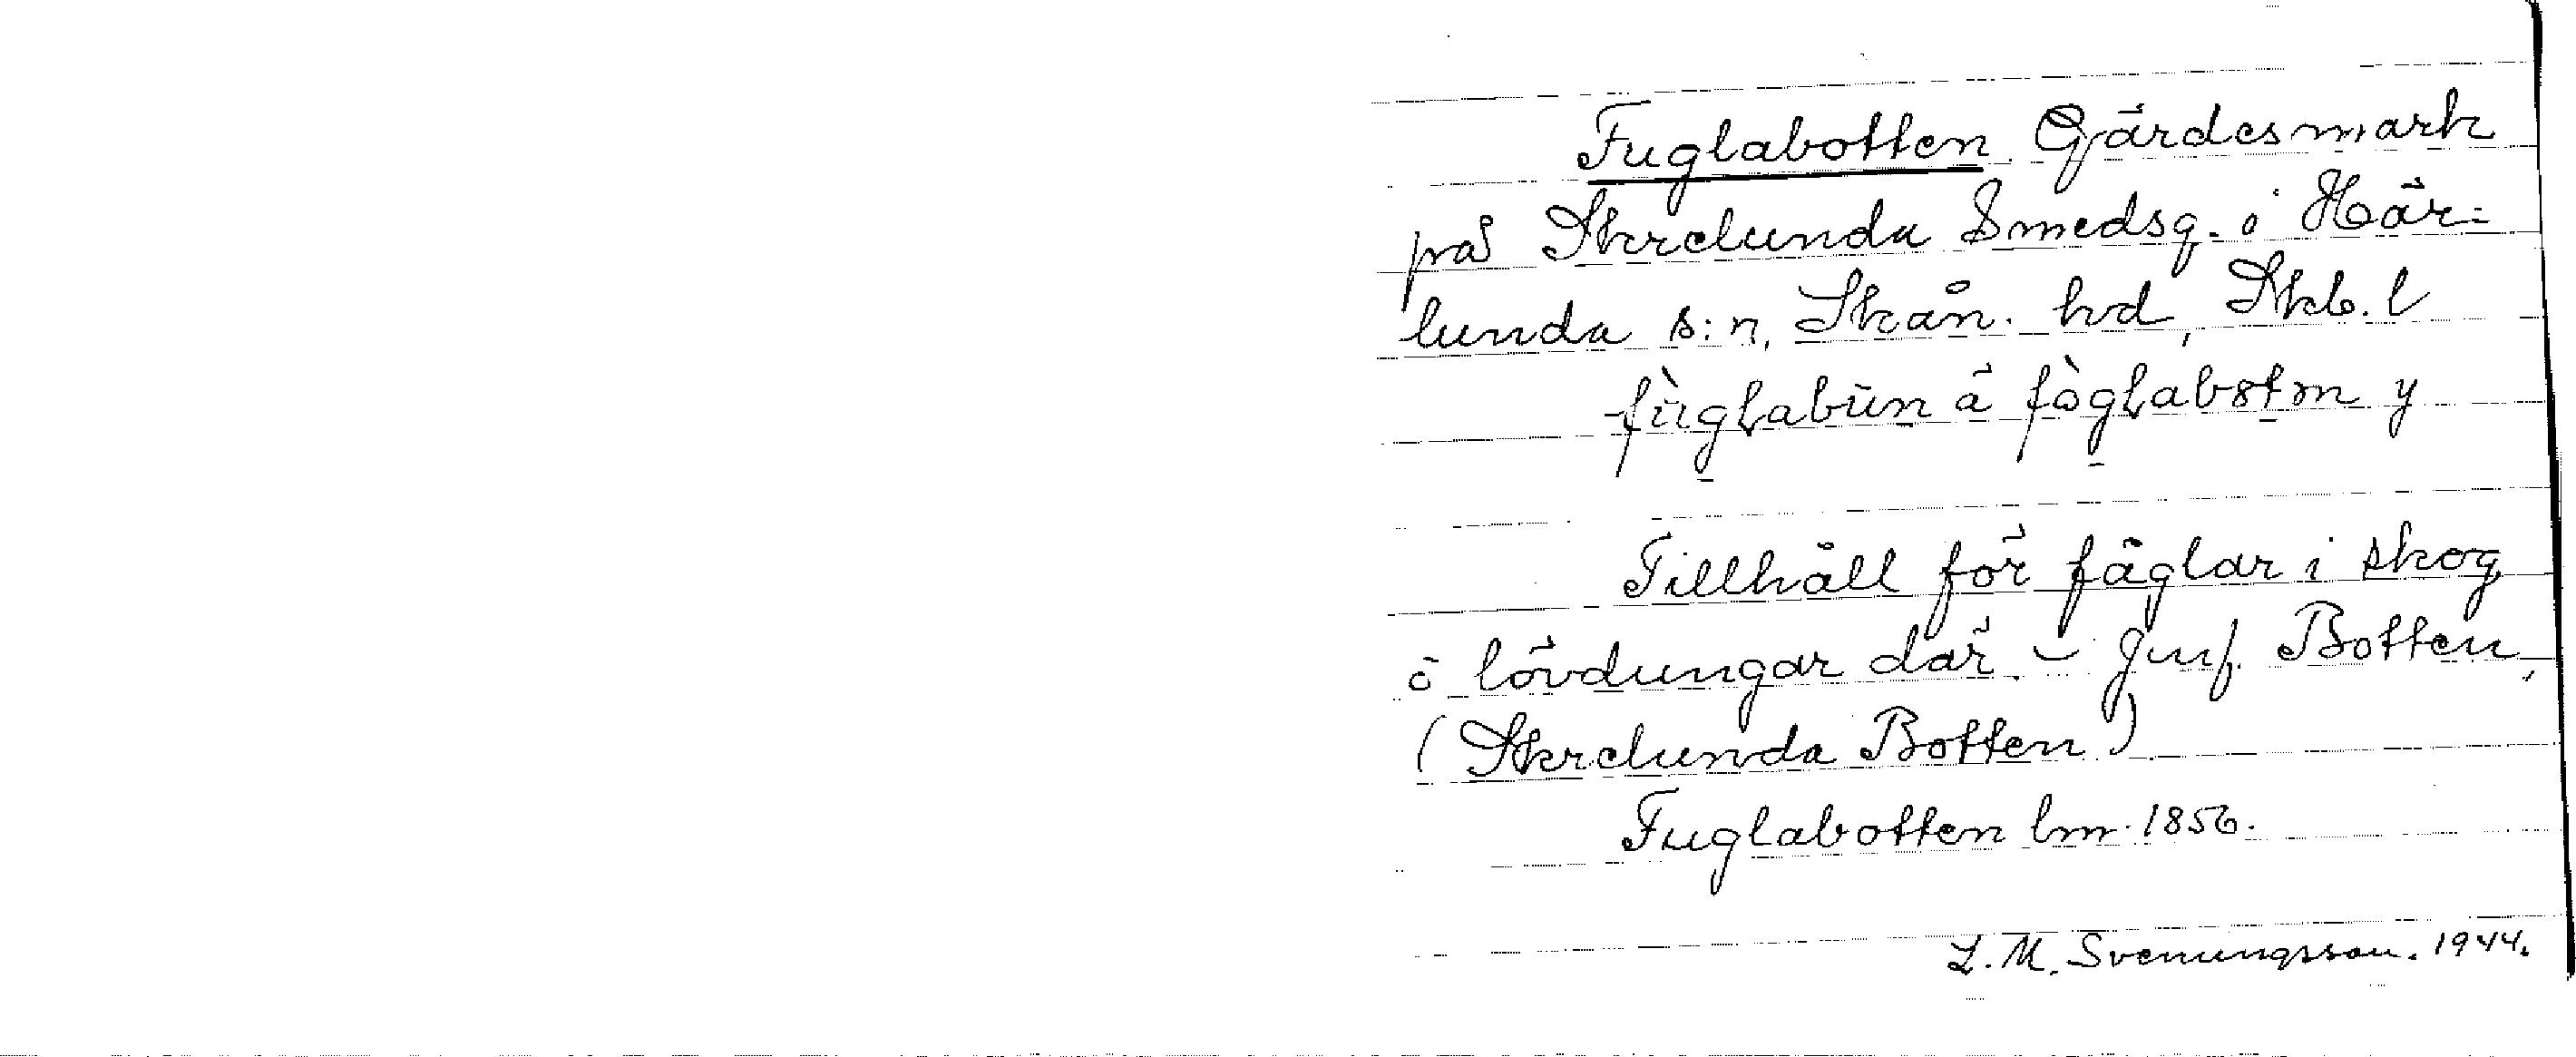 Fuglabotten Gärdesmark
på Skrelunda Smedsg. i Här-
lunda s:n, Skån. hd, Skb. l
fùglabūn å fòglabotn y
Tillhåll för fåglar i skog
o lövdungar där. – Jmf. Botten,
(Skrelunda Botten)
Fuglabotten lm. 1856.
L. M. Svenungsson. 1944.